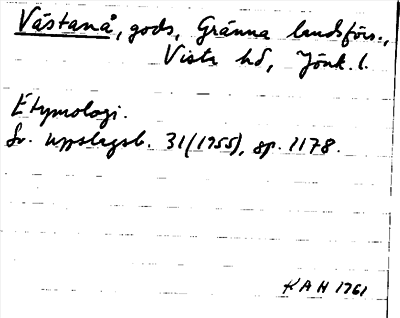 Västanå, gods, Gränna landsförs.,
Vista hd, Jönk. l.
Etymologi.
Sv. uppslagsb. 31(1955), sp. 1178.
KAH 1761